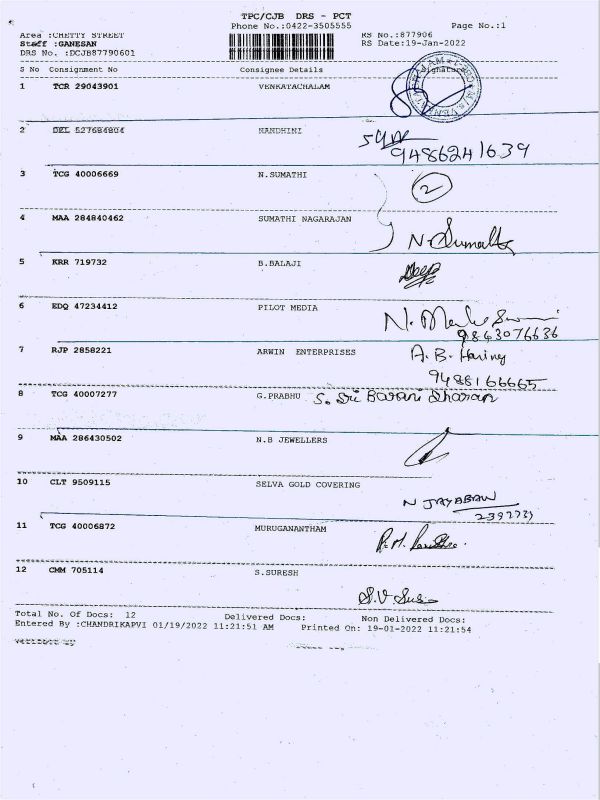 TPC/CJB DRS - PCT
Phone No.:0422-3505555 Page No.:1
Area :CHETTY STREET RS No.:877906
Staff :GANESAN RS Date:19-Jan-2022
DRS No. :DCJB87790601
S No Consignment No Consignee Details Signature
1 TCR 29043901 VENKATACHALAM
2 DEL 527684804 NANDHINI
9486241639
3 TCG 40006669 N.SUMATHI 2
4 MAA 284840462 SUMATHI NAGARAJAN
N. Sumathi
5 KRR 719732 B.BALAJI
6 EDQ 47234412 PILOT MEDIA
9843076636
7 RJP 2858221 ARWIN ENTERPRISES A.B.
9488166665
8 TCG 40007277 G.PRABHU S. Sri Barani Dharan
9 MAA 286430502 N.B JEWELLERS
10 CLT 9509115 SELVA GOLD COVERING
N JAYABRAW
2397739
11 TCG 40006872 MURUGANANTHAM
12 CMM 705114 S.SURESH
Total No. Of Docs: 12 Delivered Docs: Non Delivered Docs:
Entered By :CHANDRIKAPVI 01/19/2022 11:21:51 AM Printed On: 19-01-2022 11:21:54